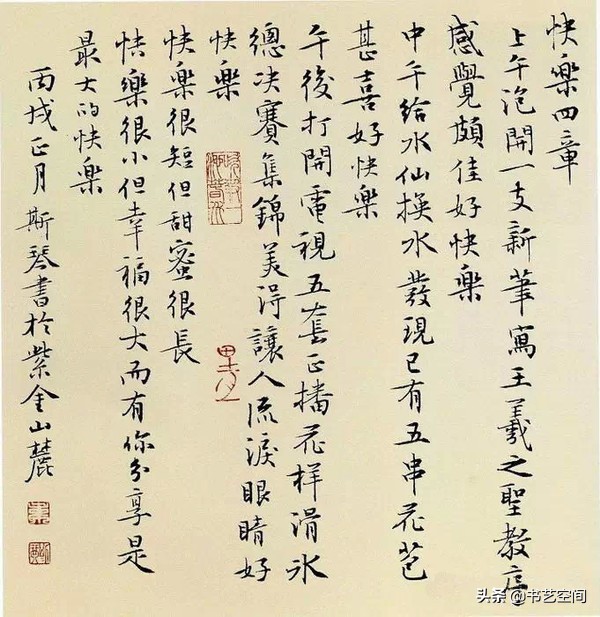 快樂四章
上午泡開一支新筆寫王羲之聖教序
感覺頗佳好快樂
中午給水仙換水發現已有五串花苞
甚喜好快樂
午後打開電視五套正播花样滑冰
總决賽集錦美淂讓人流淚眼睛好
快樂
快樂很短但甜蜜很長
快樂很小但幸福很大而有你分享是
最大的快樂
丙戌正月斯琴書於紫金山麓
头条@书艺空间